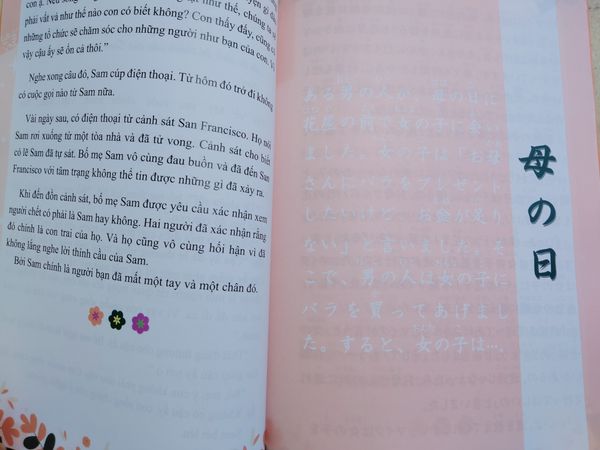 phải vất vả như thế nào con có biết không? Con thấy đấy, cũng có
những tổ chức sẽ chăm sóc cho những người như bạn của con.
vậy cậu ấy sẽ ổn cả thôi."
Nghe xong câu đó, Sam cúp điện thoại. Từ hôm đó trở đi không
có cuộc gọi nào từ Sam nữa.
Vài ngày sau, có điện thoại từ cảnh sát San Francisco. Họ nói
Sam rơi xuống từ một tòa nhà và đã tử vong. Cảnh sát cho biết
có lẽ Sam đã tự sát. Bố mẹ Sam vô cùng đau buồn và đã đến San
Francisco với tâm trạng không thể tin được những gì đã xảy ra.
Khi đến đồn cảnh sát, bố mẹ Sam được yêu cầu xác nhận xem
người chết có phải là Sam hay không. Hai người đã xác nhận rằng
đó chính là con trai của họ. Và họ cũng vô cùng hối hận vì đã
không lắng nghe lời thỉnh cầu của Sam.
Bởi Sam chính là người bạn đã mất một tay và một chân đó.
母の日
ある男の人が、母の日に
花屋の前で女の子に会い
ました。女の子は「お母
さんにバラをプレゼント
したいけど、お金が足り
ない」と言いました。そ
こで、男の人は女の子に
バラを買ってあげまし
た。すると、女の子は…。